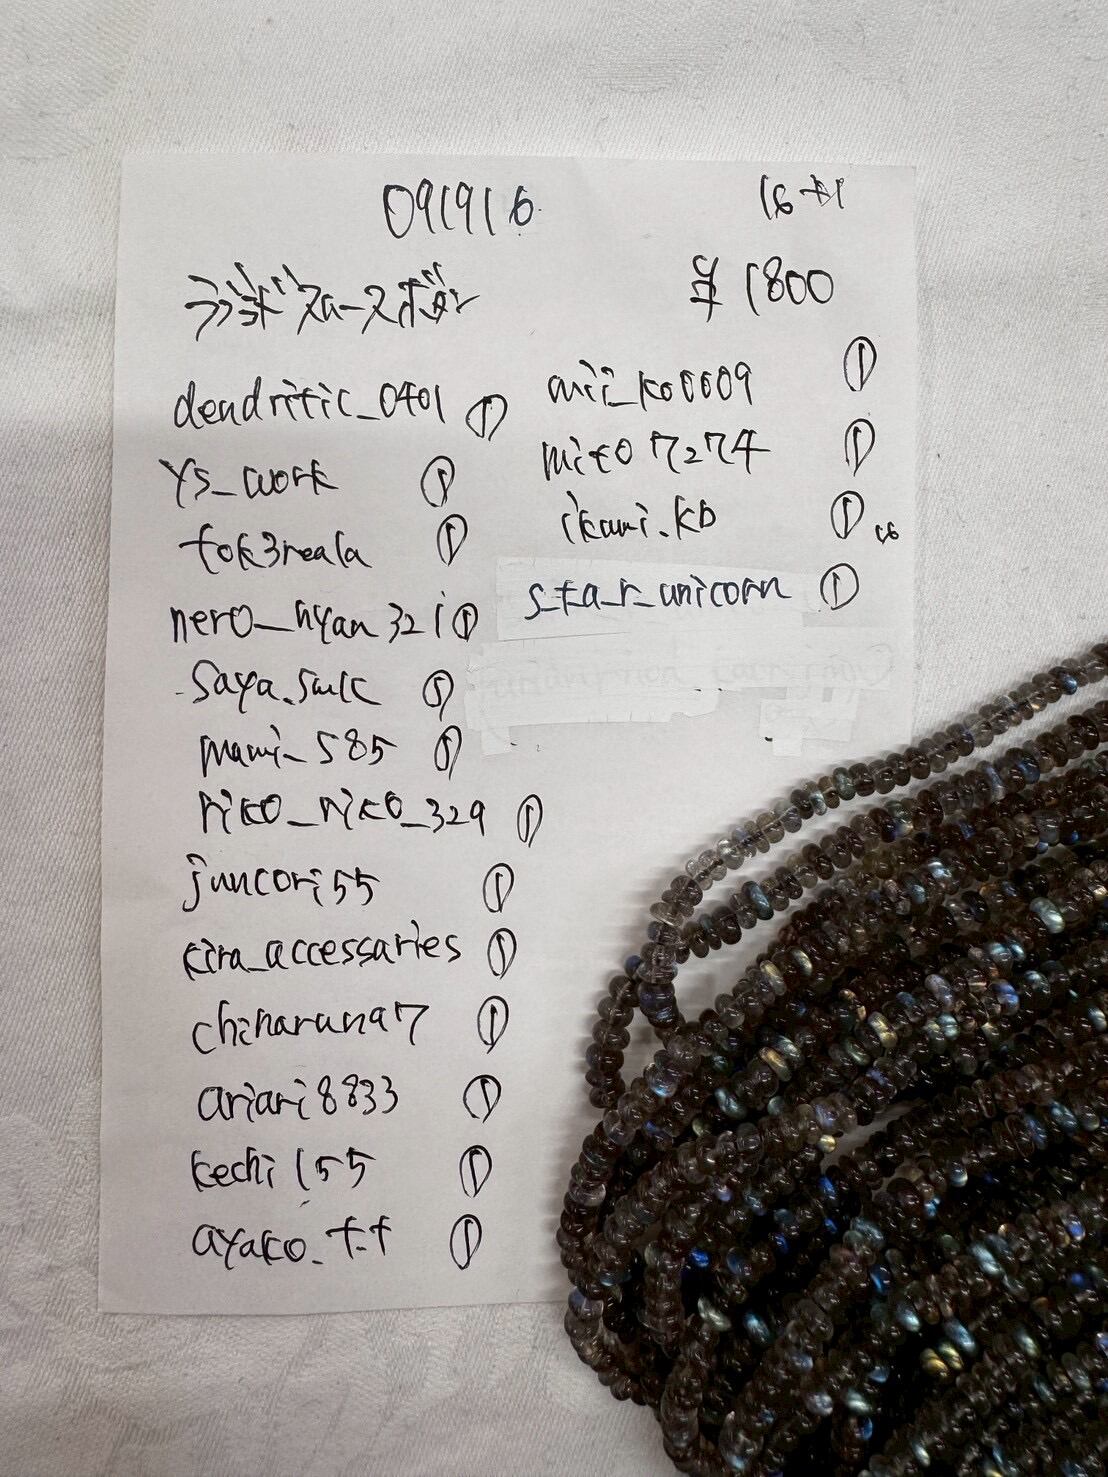 091916
16+1
ラブラドスムースボタン
¥1800
dendritic_0401 ①
ys_work ①
tok3reala ①
nero_nyan321 ①
saya.smlc ①
mami_585 ①
riko_riko_329 ①
juncori55 ①
kira_accessaries ①
chinaruna7 ①
ariari8833 ①
kechi155 ①
ayako.t.t ①
mii_ko0009 ①
mito7274 ①
ikumi.kb ① 16
s_ta_r_unicorn ①